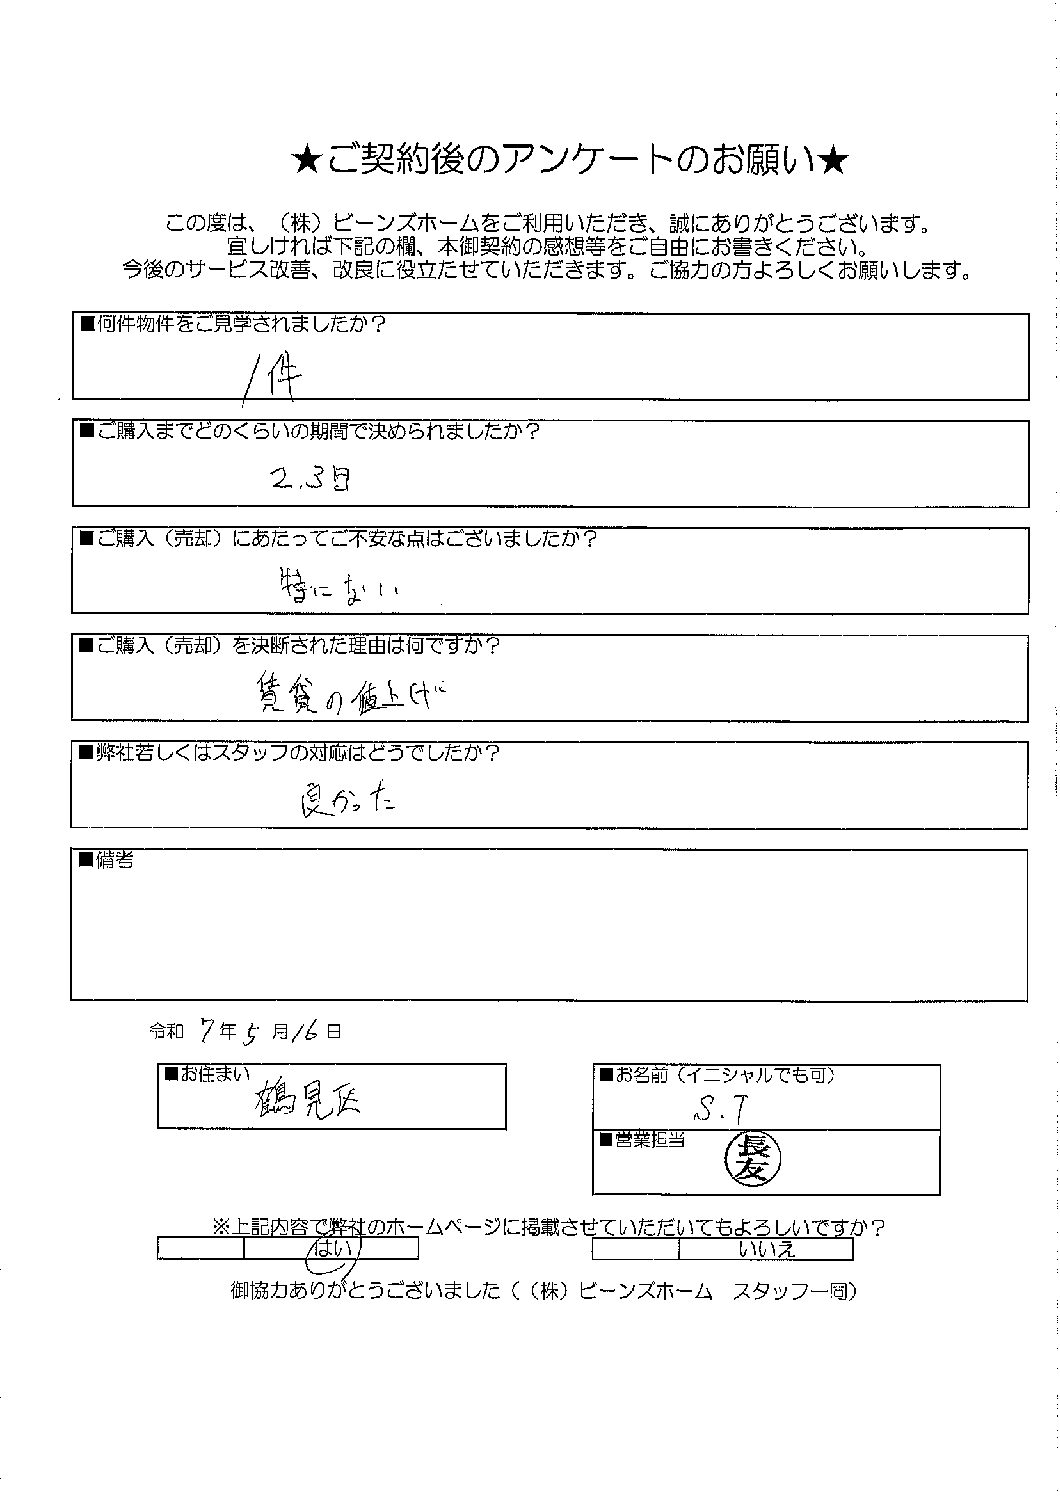 ★ご契約後のアンケートのお願い★
この度は、（株）ビーンズホームをご利用いただき、誠にありがとうございます。
宜しければ下記の欄、本御契約の感想等をご自由にお書きください。
今後のサービス改善、改良に役立たせていただきます。ご協力の方よろしくお願いします。
■何件物件をご見学されましたか？
1件
■ご購入までどのくらいの期間で決められましたか？
2.3日
■ご購入（売却）にあたってご不安な点はございましたか？
特にない
■ご購入（売却）を決断された理由は何ですか？
賃貸の値上げ
■弊社若しくはスタッフの対応はどうでしたか？
良かった
■備考
令和 7年 5月16日
■お住まい
鶴見区
■お名前（イニシャルでも可）
S.T
■営業担当
長友
※上記内容で弊社のホームページに掲載させていただいてもよろしいですか？
はい いいえ
御協力ありがとうございました（（株）ビーンズホーム　スタッフ一同）